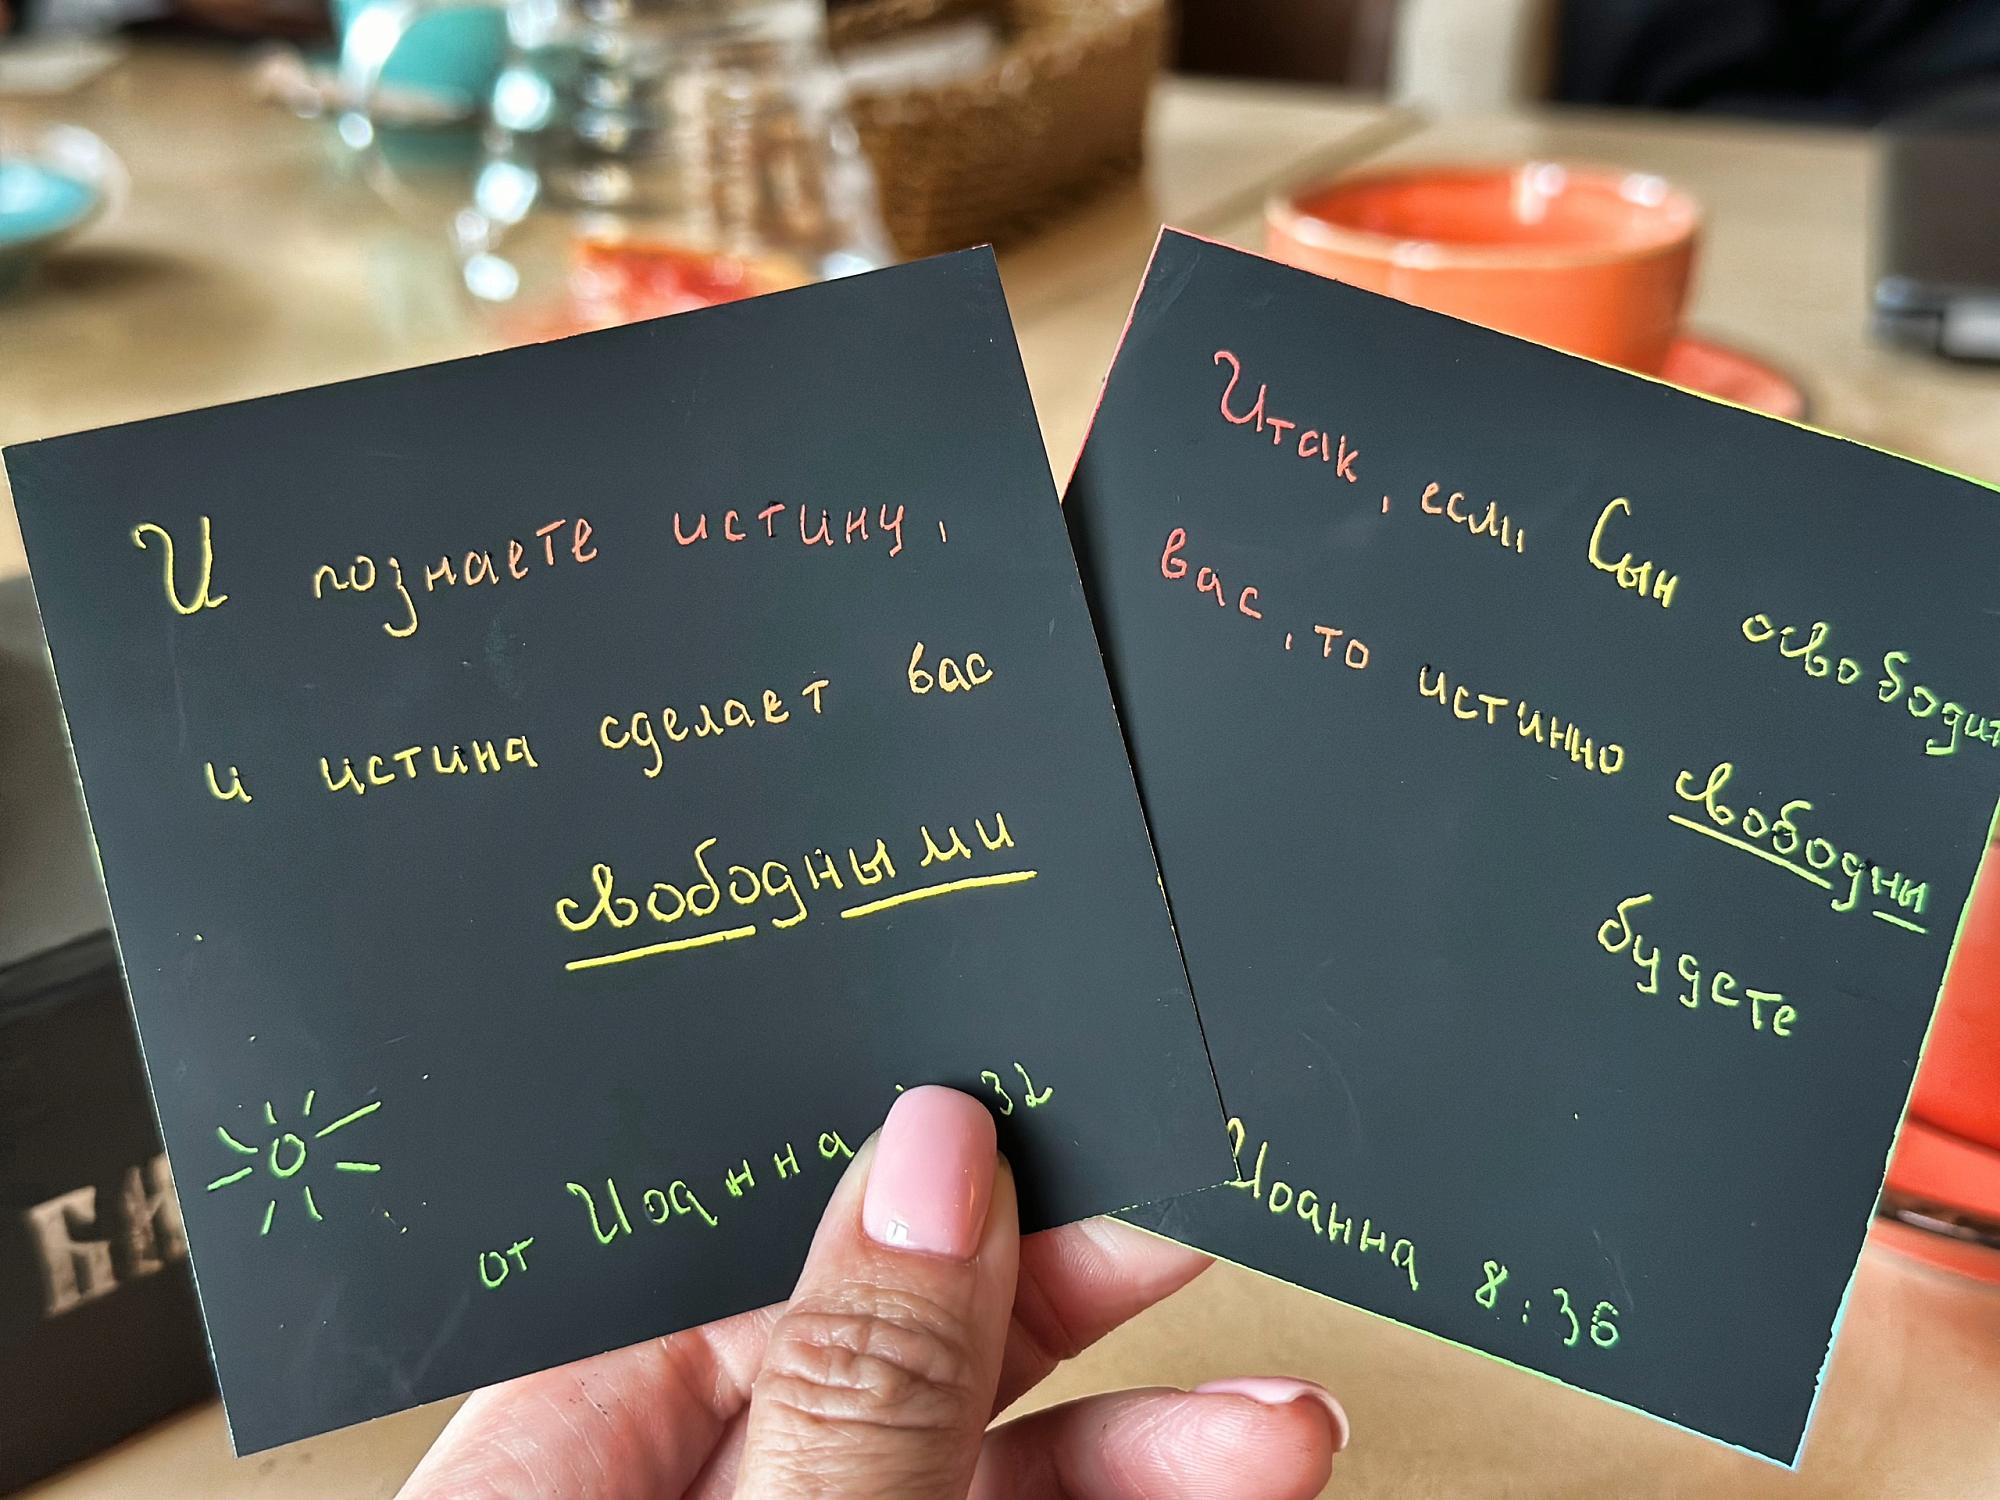 И познаете истину,
и истина сделает вас
свободными
от Иоанна 32
Итак, если Сын освободит
вас, то истинно свободны
будете
Иоанна 8:36